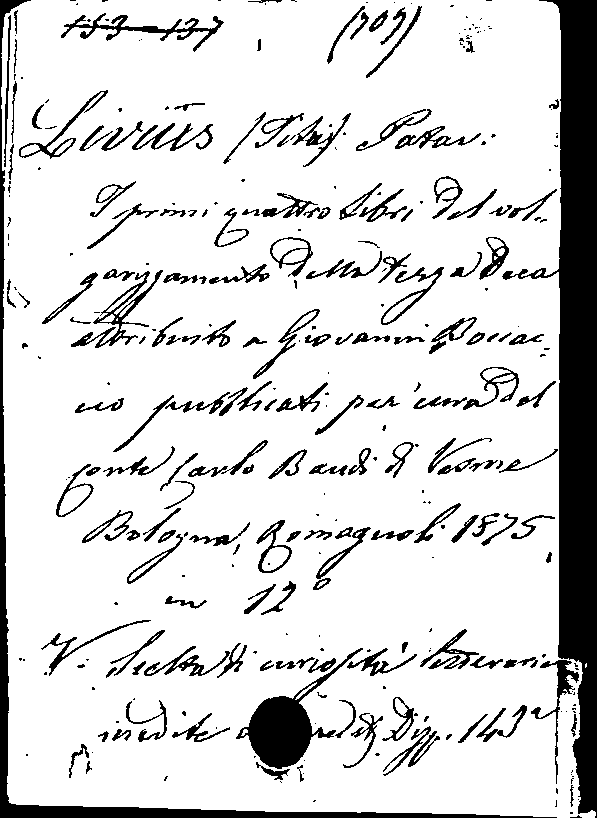 153-137 (707)
Livius (Titus) Patav:
I primi quattro libri del vol-
garizzamento della terza Deca
attribuito a Giovanni Boccac-
cio pubblicati per cura del
conte Carlo Baudi di Vesme
Bologna, Romagnoli 1875
in 12°
V. Scelta di curiosità letterarie
inedite o Disp. 143ª